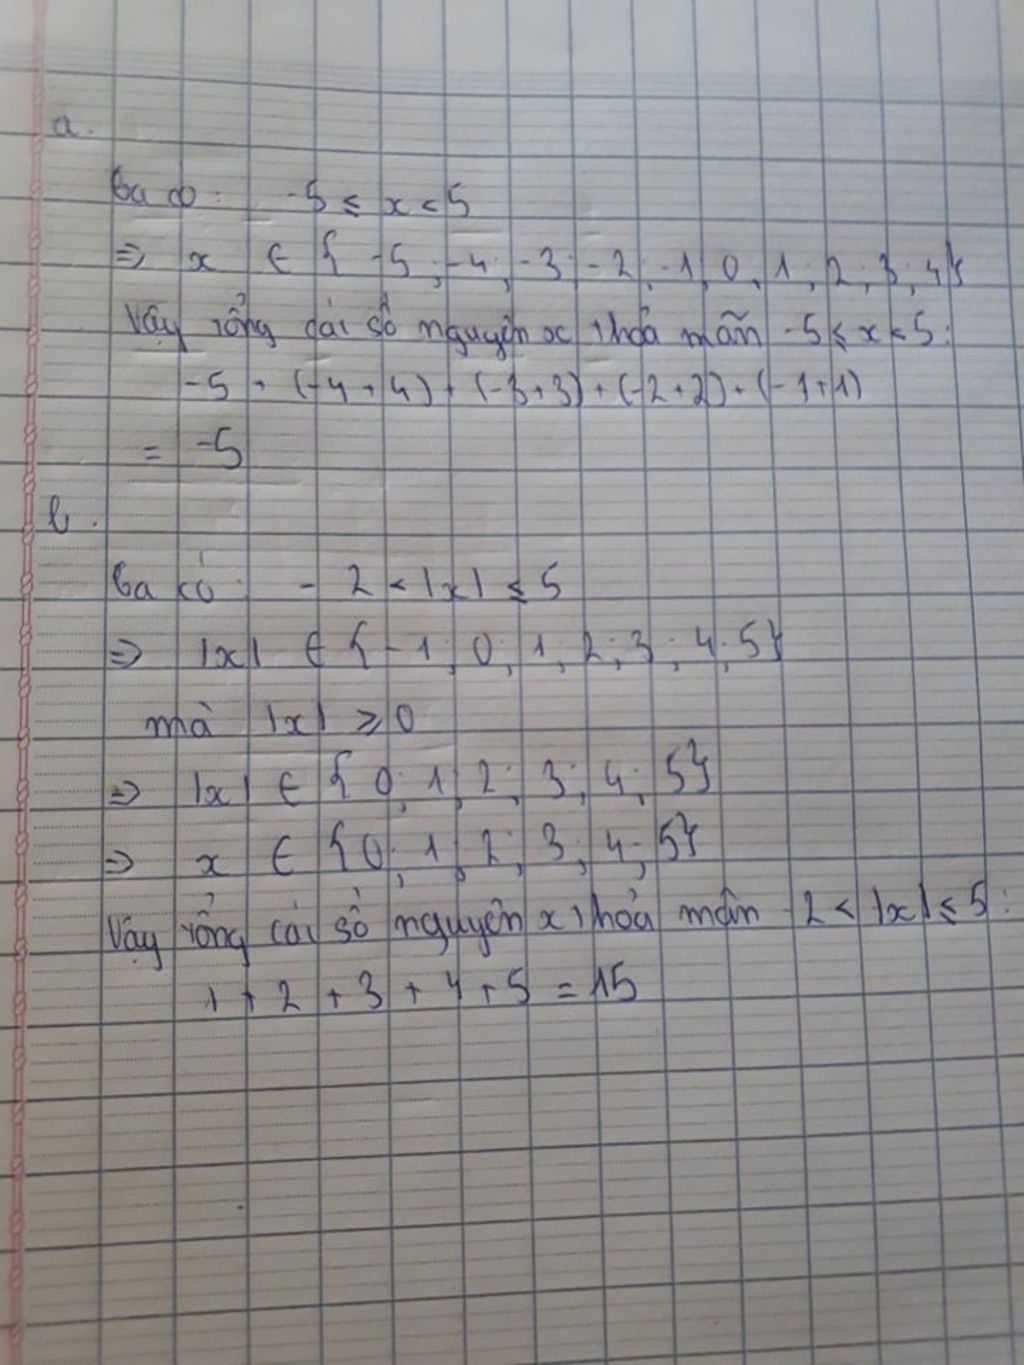 a.
Ta có: -5 ≤ x < 5
⇒ x ∈ { -5 ; -4 ; -3 ; -2 ; -1 ; 0 ; 1 ; 2 ; 3 ; 4 }
Vậy tổng các số nguyên x thỏa mãn -5 ≤ x < 5 :
-5 + (-4 + 4) + (-3 + 3) + (-2 + 2) + (-1 + 1)
= -5
b.
Ta có: - 2 < |x| ≤ 5
⇒ |x| ∈ { -1 ; 0 ; 1 ; 2 ; 3 ; 4 ; 5 }
mà |x| ≥ 0
⇒ |x| ∈ { 0 ; 1 ; 2 ; 3 ; 4 ; 5 }
⇒ x ∈ { 0 ; 1 ; 2 ; 3 ; 4 ; 5 }
Vậy tổng các số nguyên x thỏa mãn -2 < |x| ≤ 5 :
1 + 2 + 3 + 4 + 5 = 15